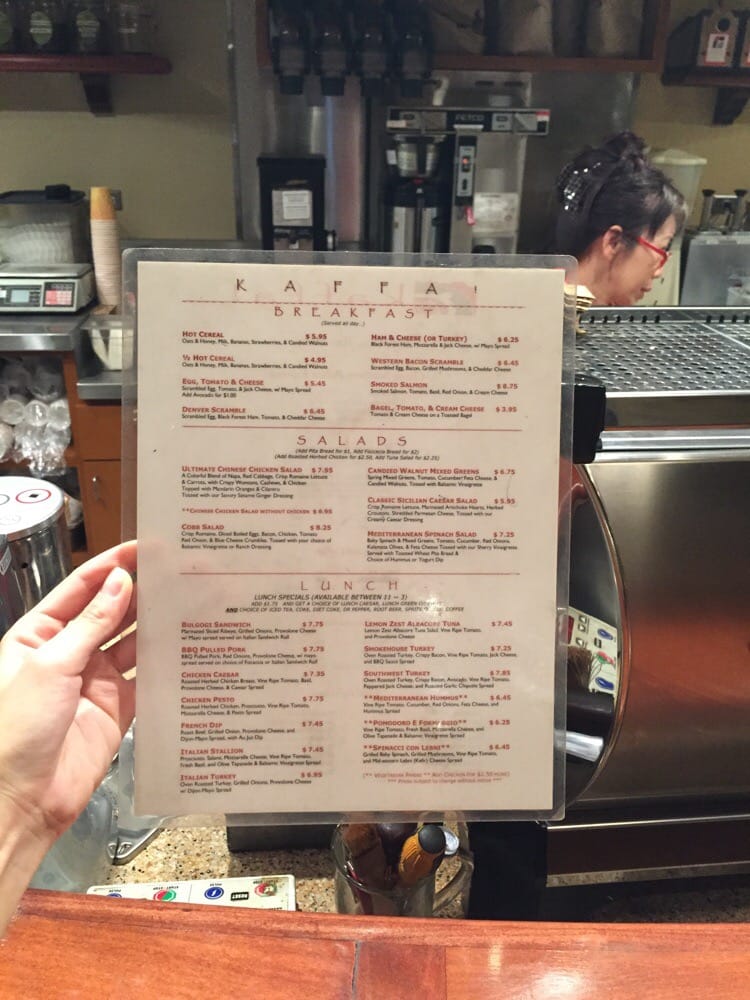 FETCO
KAFFA!
BREAKFAST
(Served all day..)
HOT CEREAL $ 5.95
Oats & Honey, Milk, Bananas, Strawberries, & Candied Walnuts
½ HOT CEREAL $ 4.95
Oats & Honey, Milk, Bananas, Strawberries, & Candied Walnuts
EGG, TOMATO & CHEESE $ 5.45
Scrambled Egg, Tomato, & Jack Cheese, w/ Mayo Spread
Add Avocado for $1.00
DENVER SCRAMBLE $ 6.45
Scrambled Egg, Black Forest Ham, Tomato, & Cheddar Cheese
HAM & CHEESE (OR TURKEY) $ 6.25
Black Forest Ham, Mozzarella & Jack Cheese, w/ Mayo Spread
WESTERN BACON SCRAMBLE $ 6.45
Scrambled Egg, Bacon, Grilled Mushrooms, & Cheddar Cheese
SMOKED SALMON $ 8.75
Smoked Salmon, Tomato, Basil, Red Onion, & Cream Cheese
BAGEL, TOMATO, & CREAM CHEESE $ 3.95
Tomato & Cream Cheese on a Toasted Bagel
SALADS
(Add Pita Bread for $1, Add Focaccia Bread for $2)
(Add Roasted Herbed Chicken for $2.50, Add Tuna Salad for $2.25)
ULTIMATE CHINESE CHICKEN SALAD $ 7.95
A Colorful Blend of Napa, Red Cabbage, Crisp Romaine Lettuce
& Carrots, with Crispy Wontons, Cashews, & Chicken
Topped with Mandarin Oranges & Cilantro
Tossed with our Savory Sesame Ginger Dressing
**CHINESE CHICKEN SALAD WITHOUT CHICKEN $ 6.95
COBB SALAD $ 8.25
Crisp Romaine, Diced Boiled Eggs, Bacon, Chicken, Tomato
Red Onion, & Blue Cheese Crumbles. Tossed with your choice of
Balsamic Vinegrette or Ranch Dressing
CANDIED WALNUT MIXED GREENS $ 6.75
Spring Mixed Greens, Tomato, Cucumber, Feta Cheese, &
Candied Walnuts, Tossed with Balsamic Vinegrette
CLASSIC SICILIAN CAESAR SALAD $ 5.95
Crisp Romaine Lettuce, Marinated Artichoke Hearts, Herbed
Croutons, Shredded Parmesan Cheese, Tossed with our
Creamy Caesar Dressing
MEDITERRANEAN SPINACH SALAD $ 7.25
Baby Spinach & Mixed Greens, Tomato, Cucumber, Red Onions,
Kalamata Olives, & Feta Cheese Tossed with our Sherry Vinegrette.
Served with Toasted Wheat Pita Bread &
Choice of Hummus or Yogurt Dip
LUNCH
LUNCH SPECIALS (AVAILABLE BETWEEN 11 ~ 3)
ADD $3.75 AND GET A CHOICE OF LUNCH CAESAR, LUNCH GREEN
AND CHOICE OF ICED TEA, COKE, DIET COKE, DR PEPPER, ROOT BEER, SPRITE, COFFEE
BULGOGI SANDWICH $ 7.75
Marinated Sliced Ribeye, Grilled Onions, Provolone Cheese
w/ Mayo spread served on Italian Sandwich Roll
BBQ PULLED PORK $ 7.75
BBQ Pulled Pork, Red Onions, Provolone Cheese, w/ mayo
spread served on choice of Focaccia or Italian Sandwich Roll
CHICKEN CAESAR $ 7.35
Roasted Herbed Chicken Breast, Vine Ripe Tomato, Basil,
Provolone Cheese, & Caesar Spread
CHICKEN PESTO $ 7.75
Roasted Herbed Chicken, Prosciutto, Vine Ripe Tomato,
Mozzarella Cheese, & Pesto Spread
FRENCH DIP $ 7.45
Roast Beef, Grilled Onion, Provolone Cheese, and
Dijon-Mayo Spread, with Au Jus Dip
ITALIAN STALLION $ 7.45
Prosciutto, Salami, Mozzarella Cheese, Vine Ripe Tomato,
Fresh Basil, and Olive Tapenade & Balsamic Vinegrette Spread
ITALIAN TURKEY $ 6.95
Oven Roasted Turkey, Grilled Onions, Provolone Cheese
w/ Dijon Mayo Spread
LEMON ZEST ALBACORE TUNA $ 7.45
Lemon Zest Albacore Tuna Salad, Vine Ripe Tomato,
and Provolone Cheese
SMOKEHOUSE TURKEY $ 7.25
Oven Roasted Turkey, Crispy Bacon, Vine Ripe Tomato, Jack Cheese,
and BBQ Sauce Spread
SOUTHWEST TURKEY $ 7.85
Oven Roasted Turkey, Crispy Bacon, Avocado, Vine Ripe Tomato,
Peppered Jack Cheese, and Roasted Garlic Chipotle Spread
**MEDITERRANEAN HUMMUS** $ 6.45
Vine Ripe Tomato, Cucumber, Red Onions, Feta Cheese, and
Hummus Spread
**POMODORO E FORMAGGIO** $ 6.25
Vine Ripe Tomato, Fresh Basil, Mozzarella Cheese, and
Olive Tapenade & Balsamic Vinegrette Spread
**SPINACCI CON LEBNI** $ 6.45
Grilled Baby Spinach, Grilled Mushrooms, Vine Ripe Tomato,
and Mid-western Lebni (Kefir) Cheese Spread
(** VEGETARIAN PANINI ** ADD CHICKEN FOR $2.50 MORE)
*** Prices subject to change without notice ***
PULSE
START · STOP
RESET